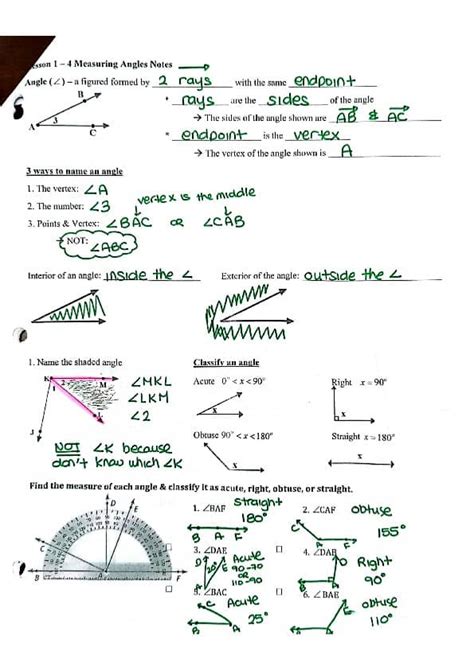 esson 1 – 4 Measuring Angles Notes
Angle (∠) – a figured formed by 2 rays with the same endpoint
* rays are the sides of the angle
→ The sides of the angle shown are AB & AC
* endpoint is the vertex
→ The vertex of the angle shown is A
B
3
A
C
3 ways to name an angle
1. The vertex: ∠A
vertex is the middle
2. The number: ∠3
3. Points & Vertex: ∠BAC OR ∠CAB
→ NOT: ∠ABC
Interior of an angle: inside the ∠
Exterior of the angle: outside the ∠
1. Name the shaded angle
K
2
M
1
L
J
∠MKL
∠LKM
∠2
NOT ∠K because
don't know which ∠K
Classify an angle
Acute 0° < x < 90°
Right x = 90°
x
x
Obtuse 90° < x < 180°
Straight x = 180°
x
x
Find the measure of each angle & classify it as acute, right, obtuse, or straight.
D
E
C
B
A
F
1. ∠BAF straight
180°
B A F
2. ∠CAF obtuse
C
155°
A F
3. ∠DAE Acute
D
E
20°
90-70
OR
110-90
A
4. ∠DAB
D
Right
90°
5. ∠BAC Acute
C
25°
B A
6. ∠BAE obtuse
E
110°
B A